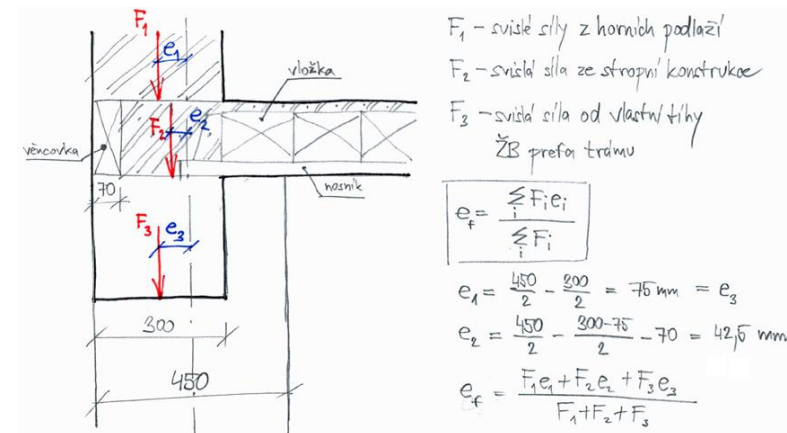 F1
e1
vložka
F2
e2
věncovka
70
nosník
F3
e3
300
450
F1 - svislé síly z horních podlaží
F2 - svislá síla ze stropní konstrukce
F3 - svislá síla od vlastní tíhy
ŽB prefa trámu
ef = Σi Fiei / Σi Fi
e1 = 450/2 - 300/2 = 75 mm = e3
e2 = 450/2 - 300-75/2 - 70 = 42,5 mm
ef = F1e1 + F2e2 + F3e3 / F1+F2+F3